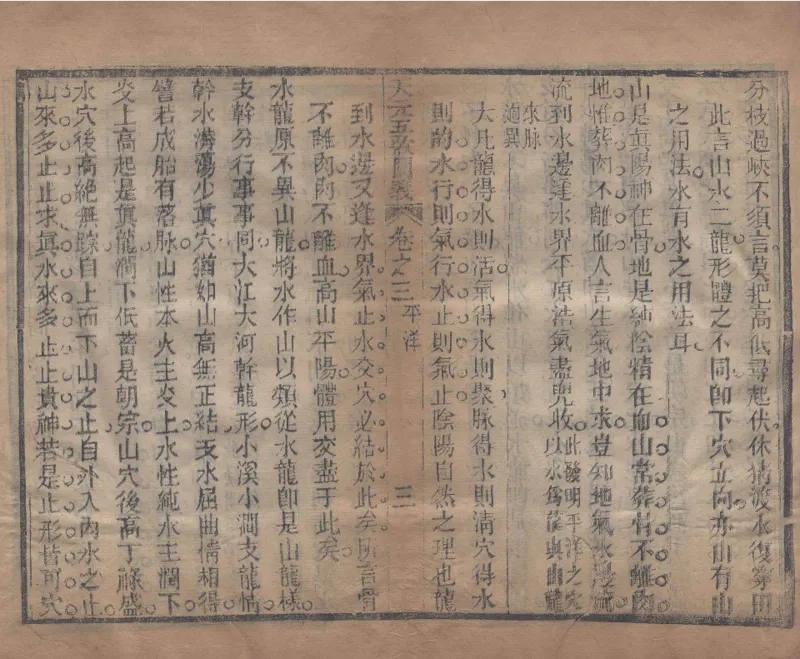 分枝過峽不須言莫把高低尋起伏休猜渡水復穿田
此言山水二龍形體之不同卽下穴立向亦山有山
之用法水有水之用法耳
山是眞陽神在骨地是純陰精在血山常葬骨不離肉
地惟葬肉不離血人言生氣地中求豈知地氣水邊流
流到水邊逢水界平原浩氣盡兜收此發明平洋之穴以水爲龍與山龍
來脉逈異
大凡龍得水則活氣得水則聚脉得水則淸穴得水
則的水行則氣行水止則氣止陰陽自然之理也龍
天元五歌闡義 卷之三 平洋 三
到水邊又逢水界氣止水交穴必結於此矣所言骨
不離肉肉不離血高山平陽體用交盡于此矣
水龍原不異山龍將水作山以類從水龍卽是山龍樣
支幹分行事事同大江大河幹龍形小溪小澗支龍情
幹水漭蕩少眞穴猶如山高無正結支水屈曲情相得
譬若成胎有落脉山性本火主炎上水性純水主潤下
炎上高起是眞龍潤下低蓄是朝宗山穴後高丁祿盛
水穴後高絕無踪自上而下山之止自外入內水之止
山來多止止求眞水來多止止貴神若是止形皆可穴